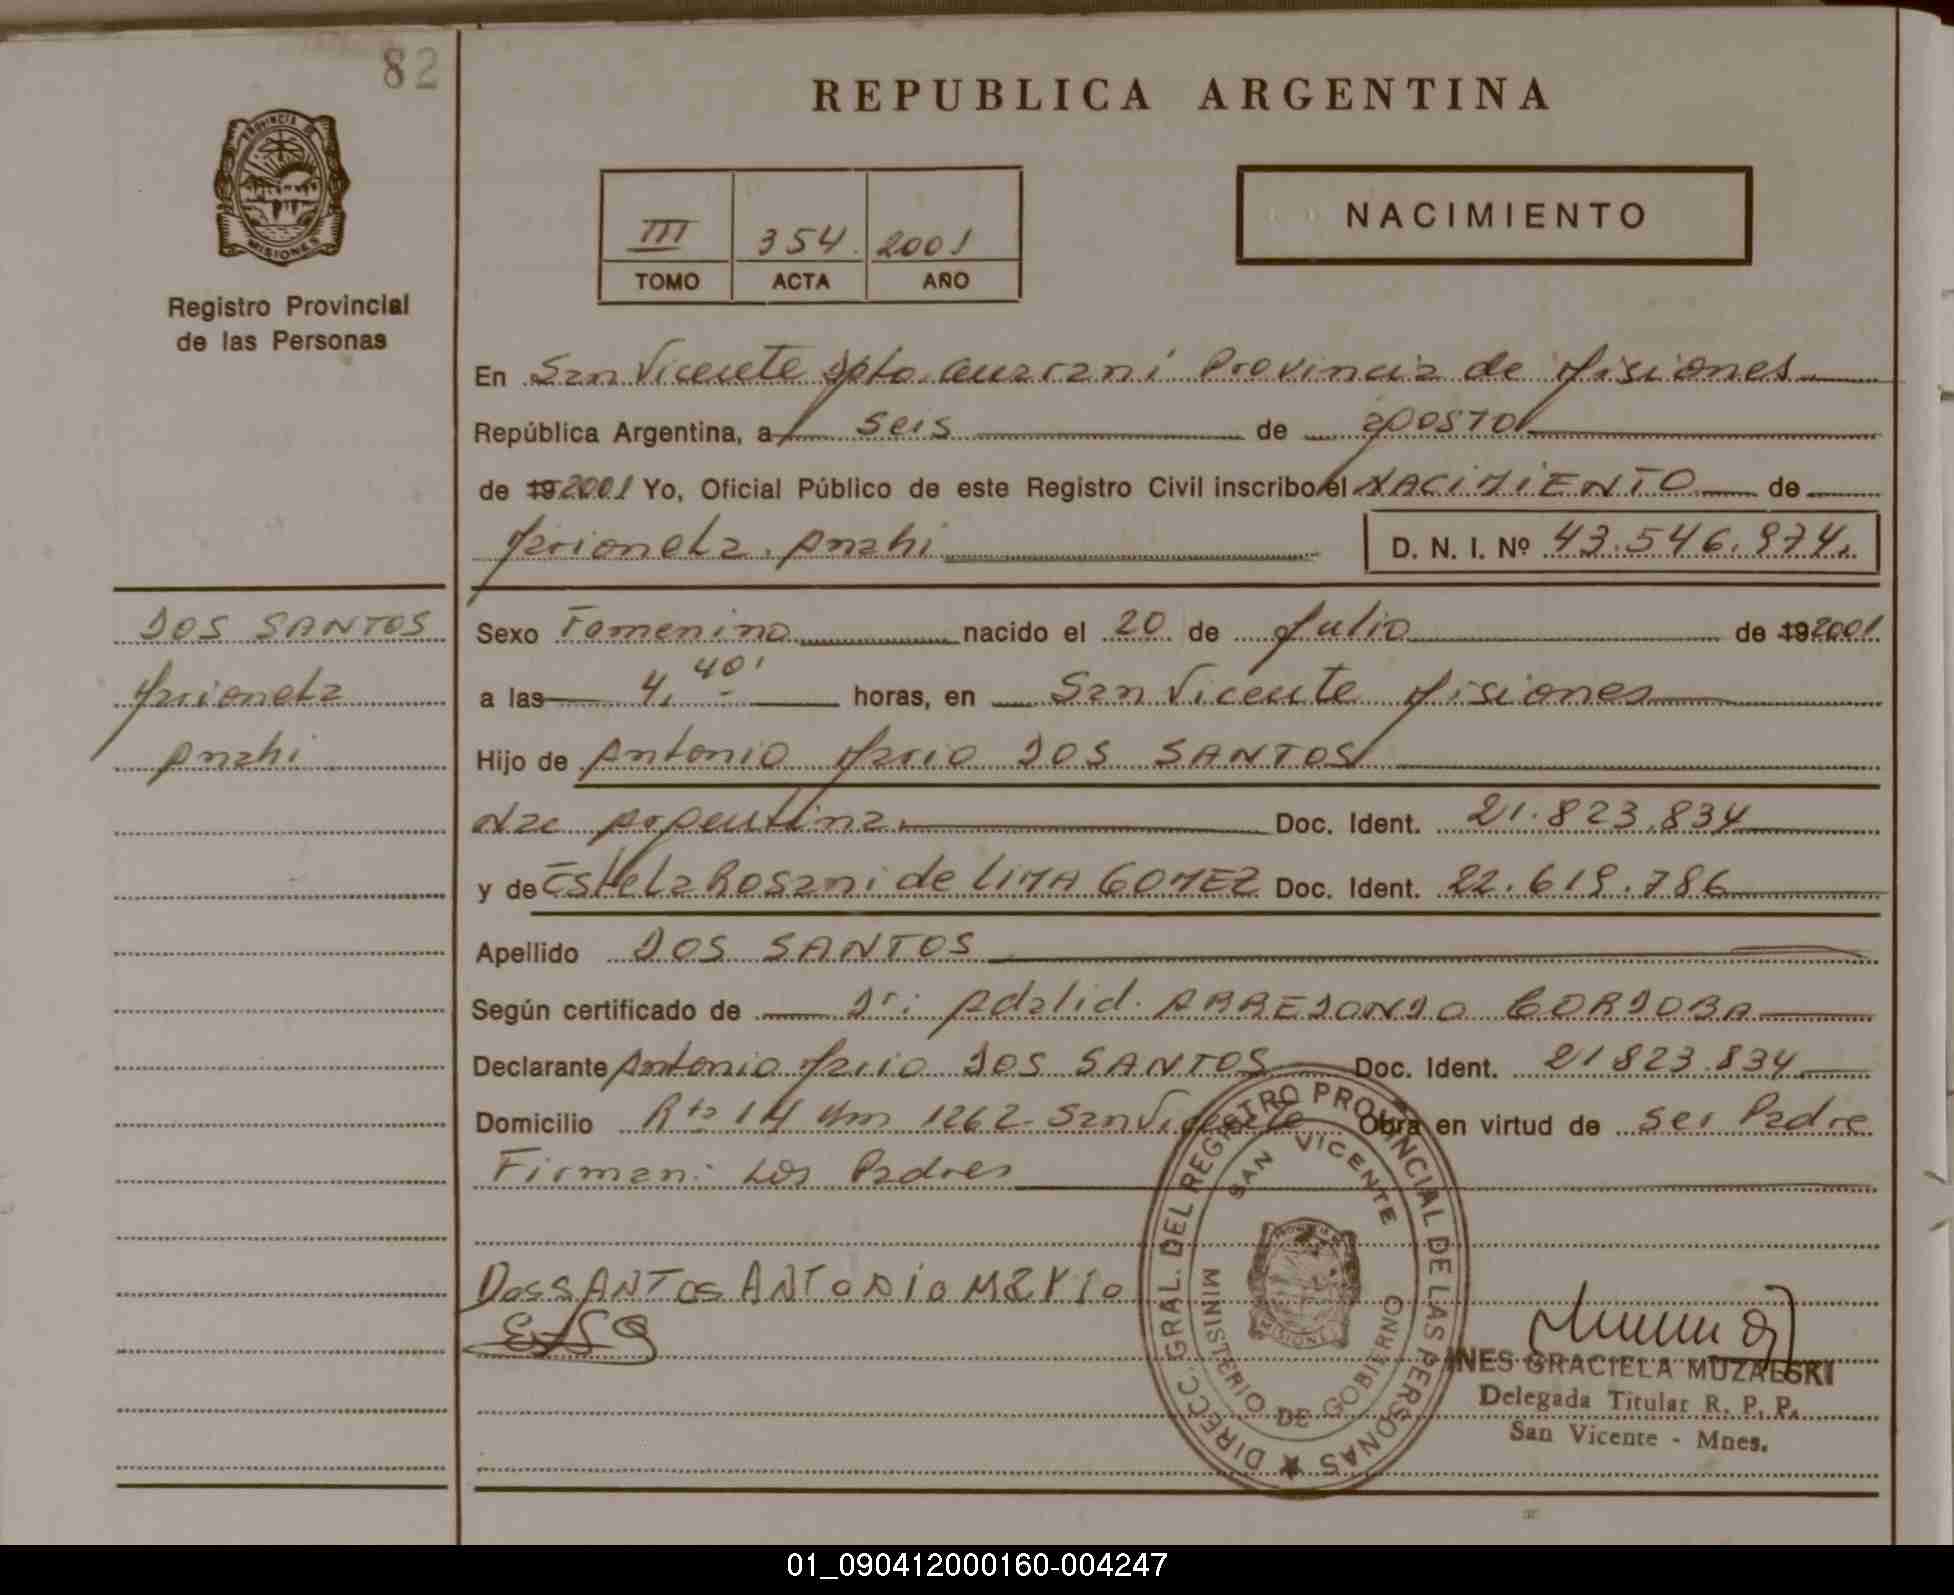 82
REPUBLICA ARGENTINA
PROVINCIA DE
MISIONES
Registro Provincial
de las Personas
III 354. 2001
TOMO ACTA AÑO
NACIMIENTO
En San Vicente Dpto. Guaraní Provincia de Misiones
República Argentina, a seis de agosto
de 19 2001 Yo, Oficial Público de este Registro Civil inscribo el NACIMIENTO de
Marionela Anahi D. N. I. Nº 43.546.974.
DOS SANTOS
Marionela
Anahi
Sexo Femenino nacido el 20 de Julio de 19 2001
a las 4,40' horas, en San Vicente Misiones
Hijo de Antonio Mario DOS SANTOS
Nac Argentina Doc. Ident. 21.823.834
y de Estela Rosani de LIMA GOMEZ Doc. Ident. 22.619.786
Apellido DOS SANTOS
Según certificado de Dr: Adalid ARREDONDO CORDOBA
Declarante Antonio Mario DOS SANTOS Doc. Ident. 21 823.834
Domicilio Rta 14 Km 1262 San Vicente Obra en virtud de ser Padre
Firman: Los Padres
DosSANTos ANTONIO MARIO
DIRECC. GRAL. DEL REGISTRO PROVINCIAL DE LAS PERSONAS
SAN VICENTE
MINISTERIO DE GOBIERNO
INES GRACIELA MUZALSKI
Delegada Titular R. P. P.
San Vicente - Mnes.
01_090412000160-004247